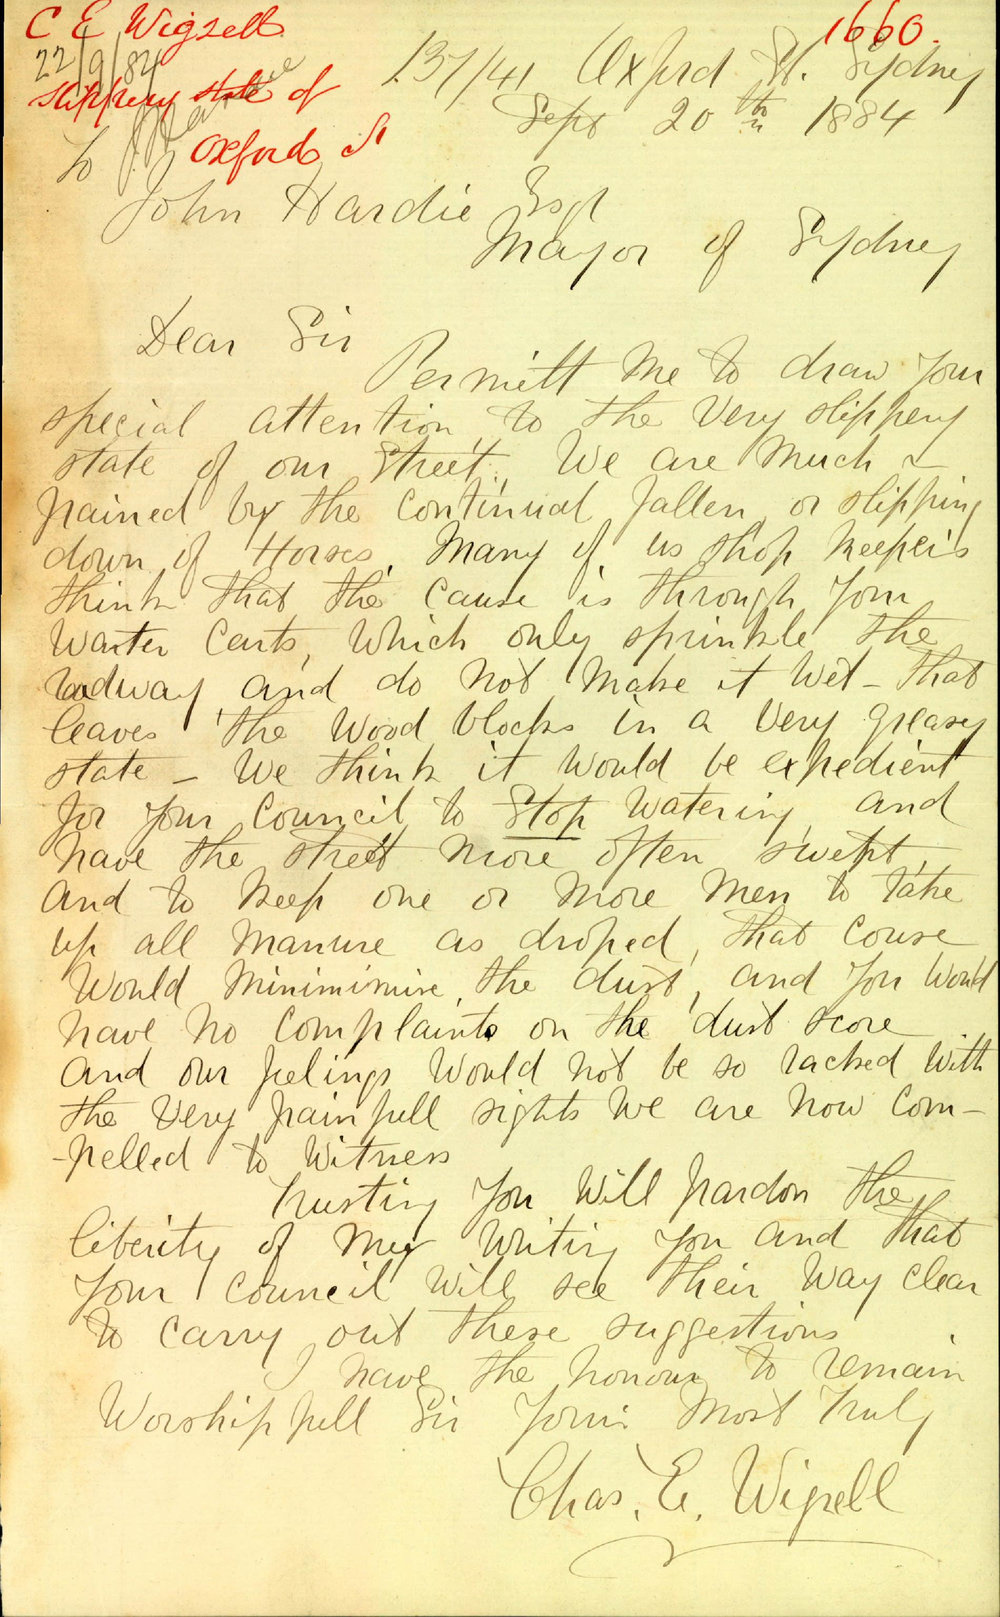 C E Wigzell
1660.
22/9/84
137/41 Oxford St. Sydney
Slippery state of
Sept 20th 1884
Oxford St
To
John Hardie Esqr
Mayor of Sydney
Dear Sir
Permitt me to draw your
special attention to the Very slippery
state of our Street, We are Much
pained by the Continual fallen or slipping
down of Horses, Many of us shop Keepers
think that the Cause is through your
Warter Carts, Which only sprinkle the
roadway and do not Make it Wet - that
leaves the Wood blocks in a Very greasey
state - We think it Would be expedient
for your Council to Stop Watering and
have the street more often swept,
and to Keep one or More Men to take
up all Manure as droped, that Couse
Would Minimimire, the dust, and you Would
have no Complaints on the dust score
and our feelings Would not be so racked With
the Very painfull sights We are now Com-
-pelled to Witness
Trusting you Will pardon the
liberity of My Writing you and that
your Council Will see their Way Clear
to Carry out these suggestions
I have the honour to remain
Worshipfull Sir Yours Most Truly
Chas. E. Wigzell